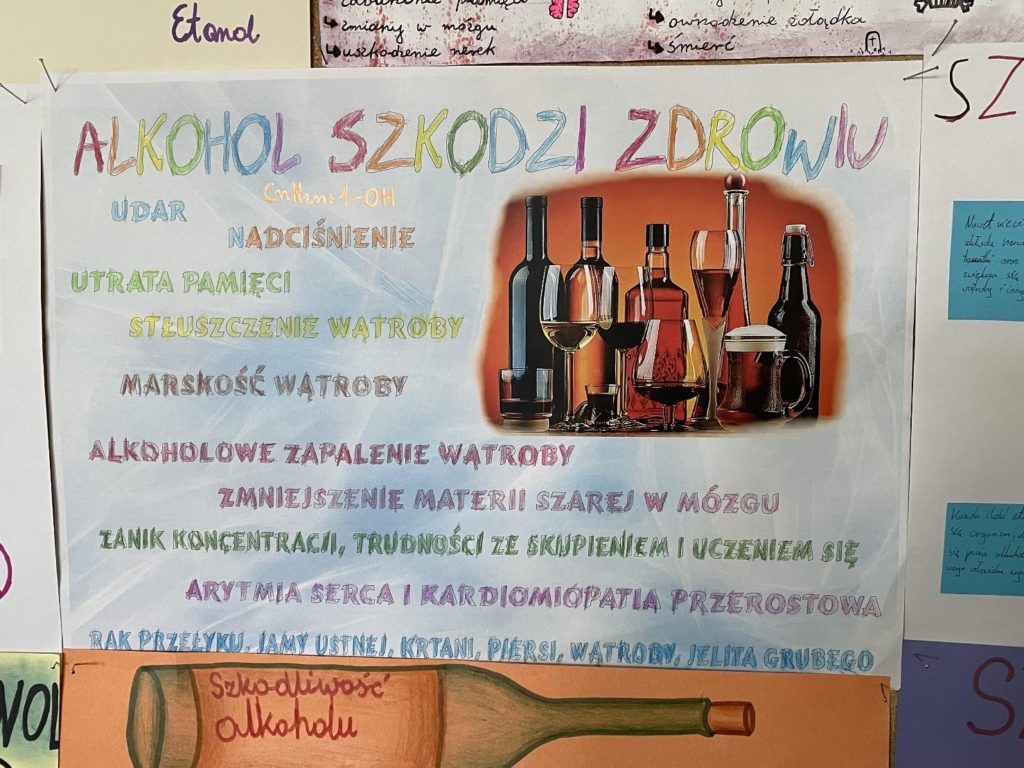 Etanol
zaburzenie pamięci
↳ zmiany w mózgu
↳ uszkodzenie nerek
↳ owrzodzenie żołądka
↳ śmierć
ALKOHOL SZKODZI ZDROWIU
CnH2n+1-OH
UDAR
NADCIŚNIENIE
UTRATA PAMIĘCI
STŁUSZCZENIE WĄTROBY
MARSKOŚĆ WĄTROBY
ALKOHOLOWE ZAPALENIE WĄTROBY
ZMNIEJSZENIE MATERII SZAREJ W MÓZGU
ZANIK KONCENTRACJI, TRUDNOŚCI ZE SKUPIENIEM I UCZENIEM SIĘ
ARYTMIA SERCA I KARDIOMIOPATIA PRZEROSTOWA
RAK PRZEŁYKU, JAMY USTNEJ, KRTANI, PIERSI, WĄTROBY, JELITA GRUBEGO
Szkodliwość
alkoholu
SZ
Nawet
układu
oraz
zwiększa się
wątroby i
Każda ilość
się
się przez
S